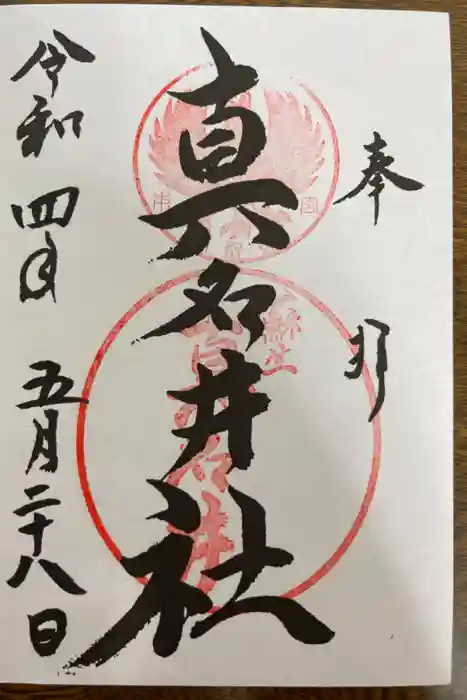 奉拝
真名井社
令和四年五月二十八日